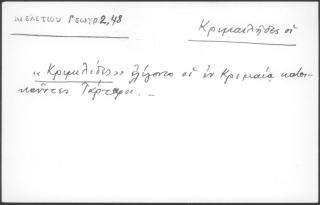 Μελετίου Γεωγρ 2,48
Κριμαιλῆδες οἱ
« Κριμιλίδες » ἐλέγοντο οἱ ἐν Κριμαίᾳ κατοι-
κοῦντες Τάρταροι. –